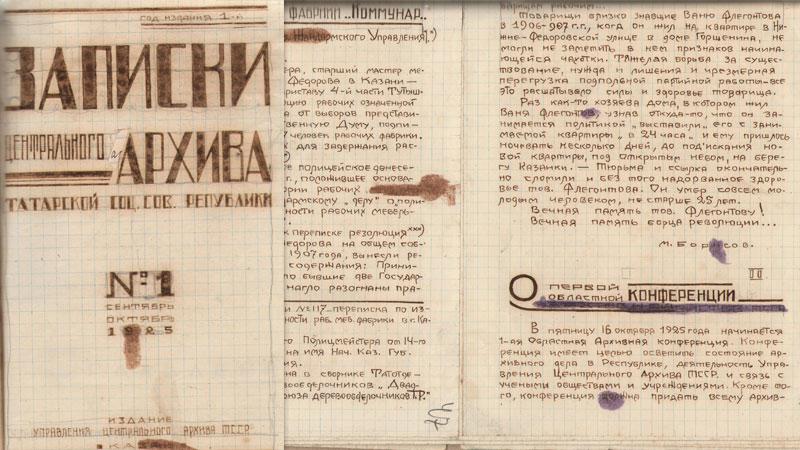 год издания 1-й
ЗАПИСКИ
ЦЕНТРАЛЬНОГО
АРХИВА
ТАТАРСКОЙ СОЦ. СОВ. РЕСПУБЛИКИ
№1
СЕНТЯБРЬ
ОКТЯБРЬ
1925
ИЗДАНИЕ
УПРАВЛЕНИЯ ЦЕНТРАЛЬНОГО АРХИВА ТССР
КАЗАНЬ
ФАБРИКИ „КОММУНАР
Жандармского Управления)
ера, старший мастер ме-
Федорова в Казани —
приставу 4-й части Тутыш-
цию рабочих означенной
от выборов представи-
венную Думу, подпи-
человек рабочих фабрики.
х для задержания рас-
е полицейское донесе-
г., положившее основа-
ории рабочих
армскому „делу" о поли-
ности рабочих мебель-
переписке резолюция xxx)
едорова на общем соб-
1907 года, вынесли ре-
содержания: Прини-
о бывшие две Государ-
нагло разогнаны пра-
и №117 – переписка по из-
ности раб. меб. фабрики в г. Ка-
о Полицмейстера от 14-го
на имя Нач. Каз. Губ.
ия.
на в сборнике Татотде-
вообделочников „Двад-
юза деревообделочников Т.Р."
варищам рабочим..
Товарищи близко знавшие Ваню Флегонтова
в 1906-907 г.г., когда он жил на квартире в Ни-
жне-Федоровской улице в доме Горшенина, не
могли не заметить в нем признаков начина-
ющейся чахотки. Тяжелая борьба за суще-
ствование, нужда и лишения и чрезмерная
перегрузка подпольной партийной работы – все
это расшатывало силы и здоровье товарища.
Раз как-то хозяева дома, в котором жил
Ваня Флегонтов, узнав откуда-то, что он за-
нимается политикой „выставили„ его с зани-
маемой квартиры „в 24 часа„ и ему пришлось
ночевать несколько дней, до под'искания но-
вой квартиры, под открытым небом, на бере-
гу Казанки. — Тюрьма и ссылка окончатель-
но сломили и без того надорванное здоро-
вье тов. Флегонтова. Он умер совсем мо-
лодым человеком, не старше 25 лет.
Вечная память тов. Флегонтову!
Вечная память борца революции...
М. Борисов.
О ПЕРВОЙ
ОБЛАСТНОЙ КОНФЕРЕНЦИИ
В пятницу 16 октября 1925 года начинается
1-ая Областная Архивная конференция. Конфе-
ренция имеет целью осветить состояние ар-
хивного дела в Республике, деятельность Упра-
вления Центрального Архива ТССР. и связь с
учеными обществами и учреждениями. Кроме то-
го, конференция должна придать всему архив-